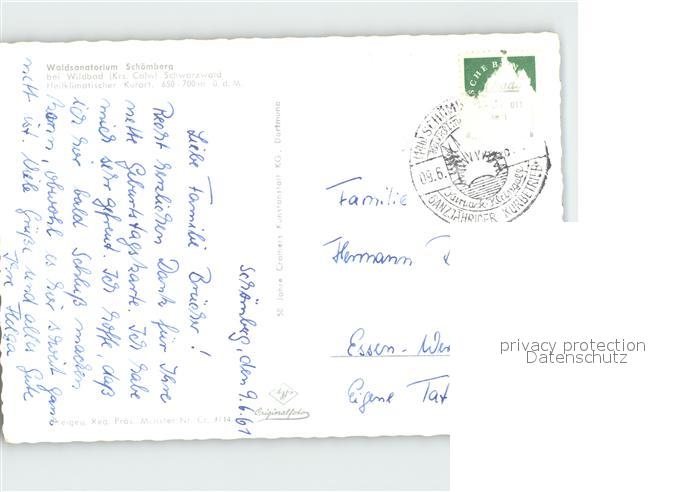 Waldsanatorium Schömberg
bei Wildbad (Krs. Calw) Schwarzwald
Heilklimatischer Kurort, 650-700 m ü. d. M.
Schömberg, den 9.6.61
Liebe Familie Brücher!
Recht herzlichen Dank für Ihre
nette Geburtstagskarte. Ich habe
mich sehr gefreut. Ich hoffe, daß
ich hier bald Schluß machen
kann, obwohl es hier soweit ganz
nett ist. Viele Grüße und alles Gute
Ihre Helga
50 Jahre Cramers Kunstanstalt KG, Dortmund
Originalfoto
Freigeg. Reg. Präs. Münster Nr. Cr.
SCHE B
09.6.
GANZJÄHRIGER KURBETRIEB
Familie
Hermann
Essen-Wer
Eigene
privacy protection
Datenschutz